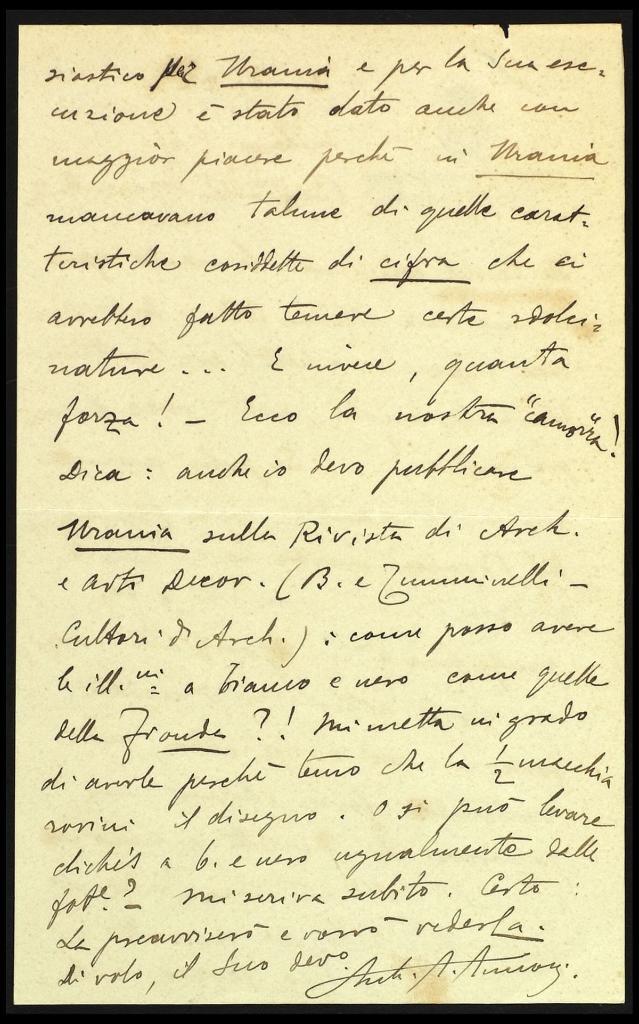 siastico per Urania e per la Sua ese=
cuzione è stato dato anche con
maggior piacere perché in Urania
mancavano talune di quelle carat=
teristiche cosidette di cifra che ci
avrebbero fatto temere certe sdolci=
nature... E invece, quanta
forza! – Ecco la nostra "camorra"!
Dica: anche io devo pubblicare
Urania sulla Rivista di Arch.
e arti Decor. (B. e Tumminelli –
Cultori di Arch.): come posso avere
le ill.ni a bianco e nero come quelle
della Fionda?! Mi metta in grado
di averle perché temo che la ½ macchia
rovini il disegno. O si può levare
clichés a b. e nero ugualmente dalle
fote? – Mi scriva subito. Certo:
La preavviserò e vorrò vederla.
Di volo, il Suo devo
Arch.